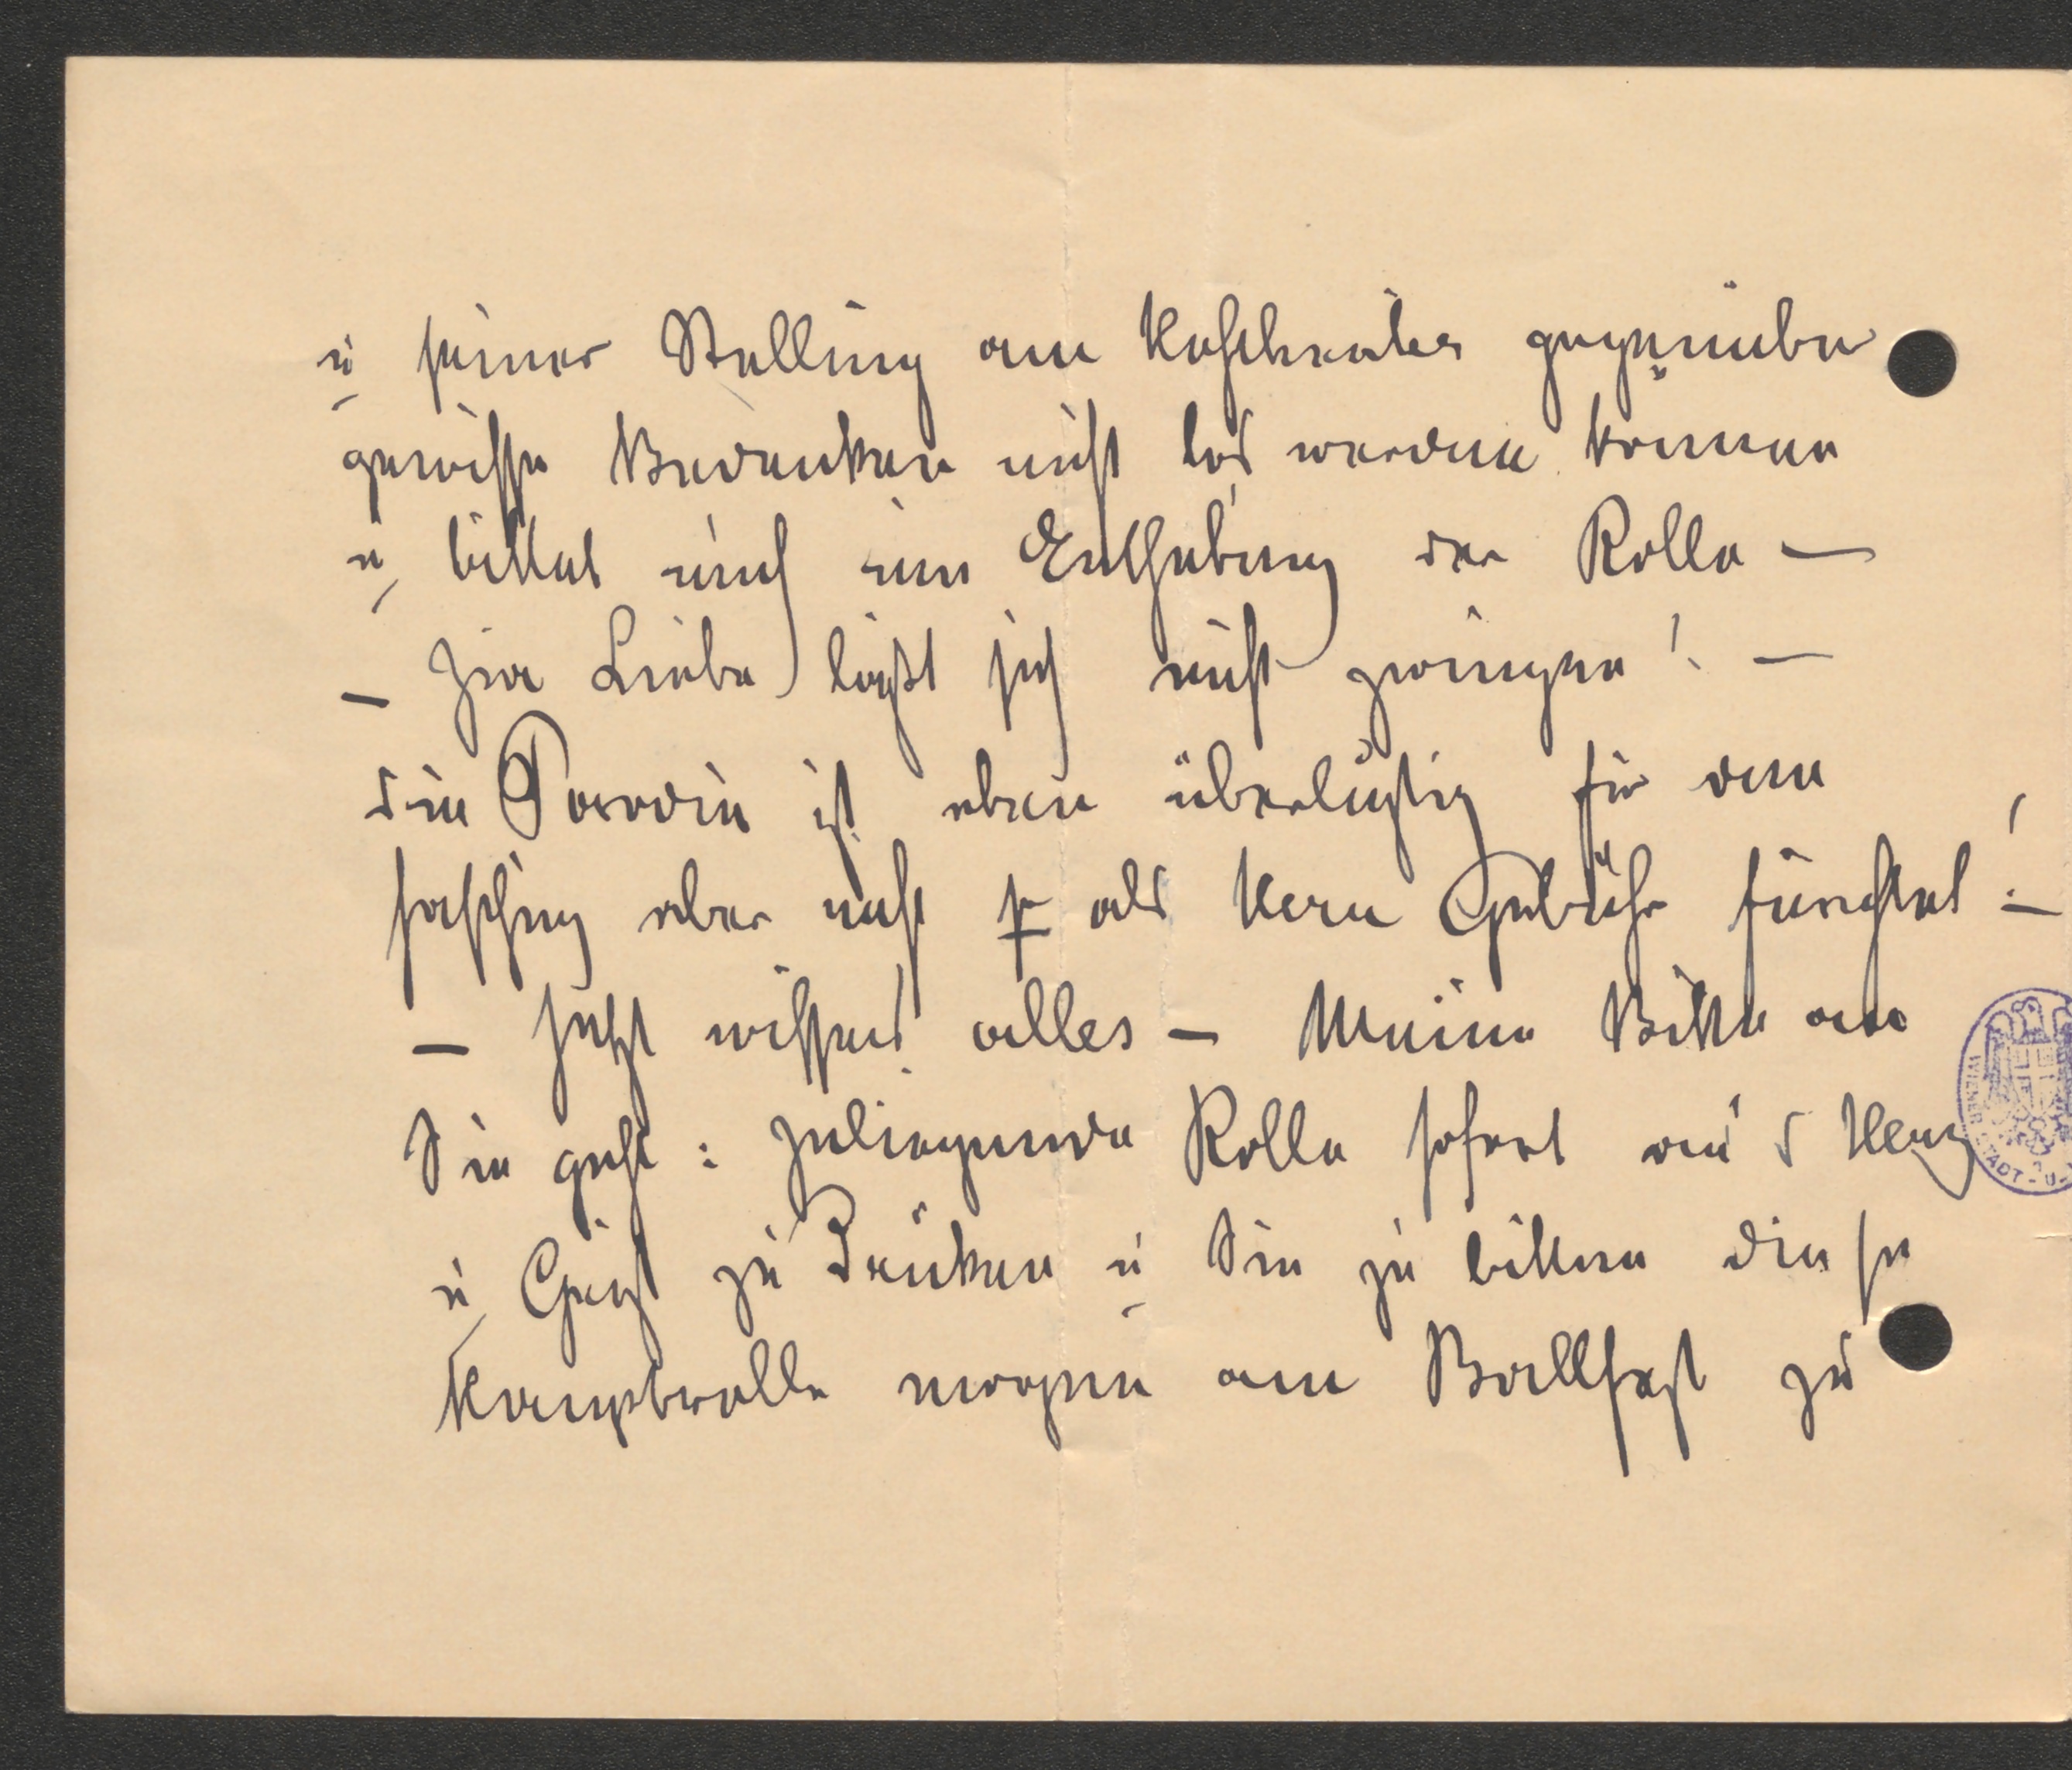 u seiner Stellung am Hoftheater gegenüber
gewisse Bedenken nicht los werden können
u bittet mich um Enthebung der Rolle —
— Zur Liebe läßt sich nicht zwingen! —
die Parodie ist eben überlustig für den
Fasching aber nicht als Herr fürchtet! —
— Jetzt wissens alles — Meine Bitte an
Sie geht: zuliegende Rolle sofort an's Herz
u Geist zu drücken u Sie zu bitten diese
Hauptrolle morgen am Ballfest zu
WIENER STADT - U -